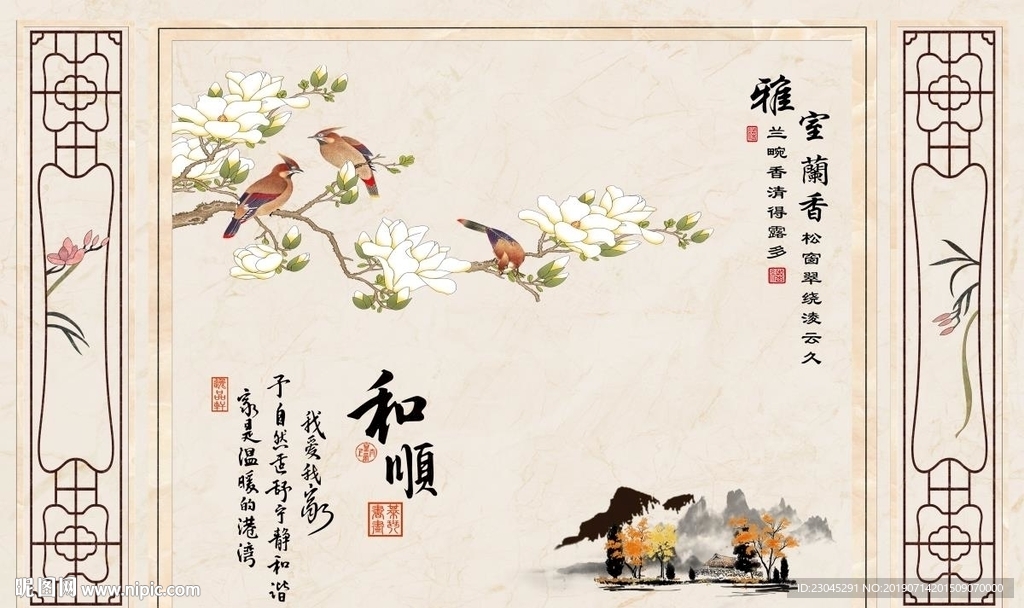 雅室蘭香
松窗翠绕淩云久
兰畹香清得露多
和順
我爱我家
予自然
静和谐
家是温暖的港湾
昵图网 www.nipic.com
ID:23045291 NO:20190714201509070000